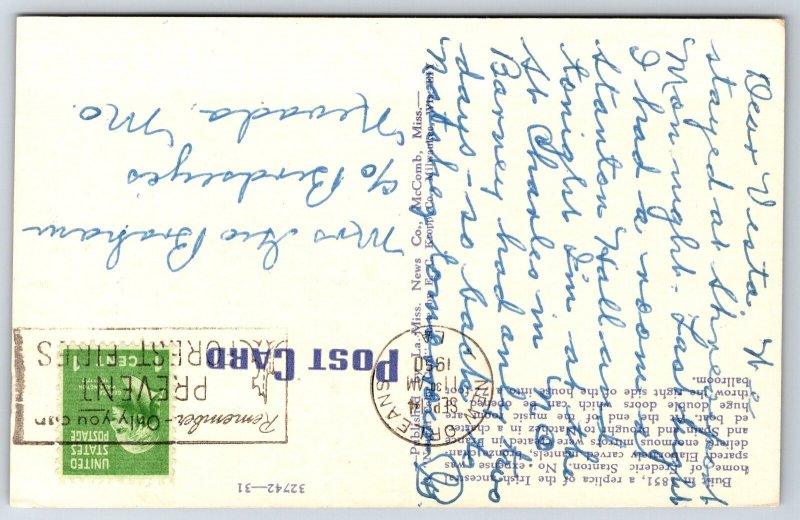 Built in 1851, a replica of the Irish ancestral
home of Frederic Stanton. No expense was
spared. Elaborately carved mantels, bronze
enormous mirrors were created in France
and Spain and brought to Natchez in a charter-
ed boat. At the end of the music room
huge double doors which can be opened to
throw the right side of the house into a
ballroom.
32742-31
POST CARD
UNITED
STATES
POSTAGE
1 CENT 1
Remember-Only you can
PREVENT
FOREST FIRES
NEW ORLEANS
SEP
AM
1950
LA
Dear Vesta, We
stayed at Shreveport
Mon night. Last night
I had a room at
Stanton Hall and
tonight I'm at the
St Charles in N.O.
Barney had only two
days - so back to
Natchez tomorrow
Mrs Geo Braham
c/o Birdseyes
Nevada, Mo.
La.-Miss. News Co., McComb, Miss.—
E. C. Kropp Co., Milwaukee, Wis.